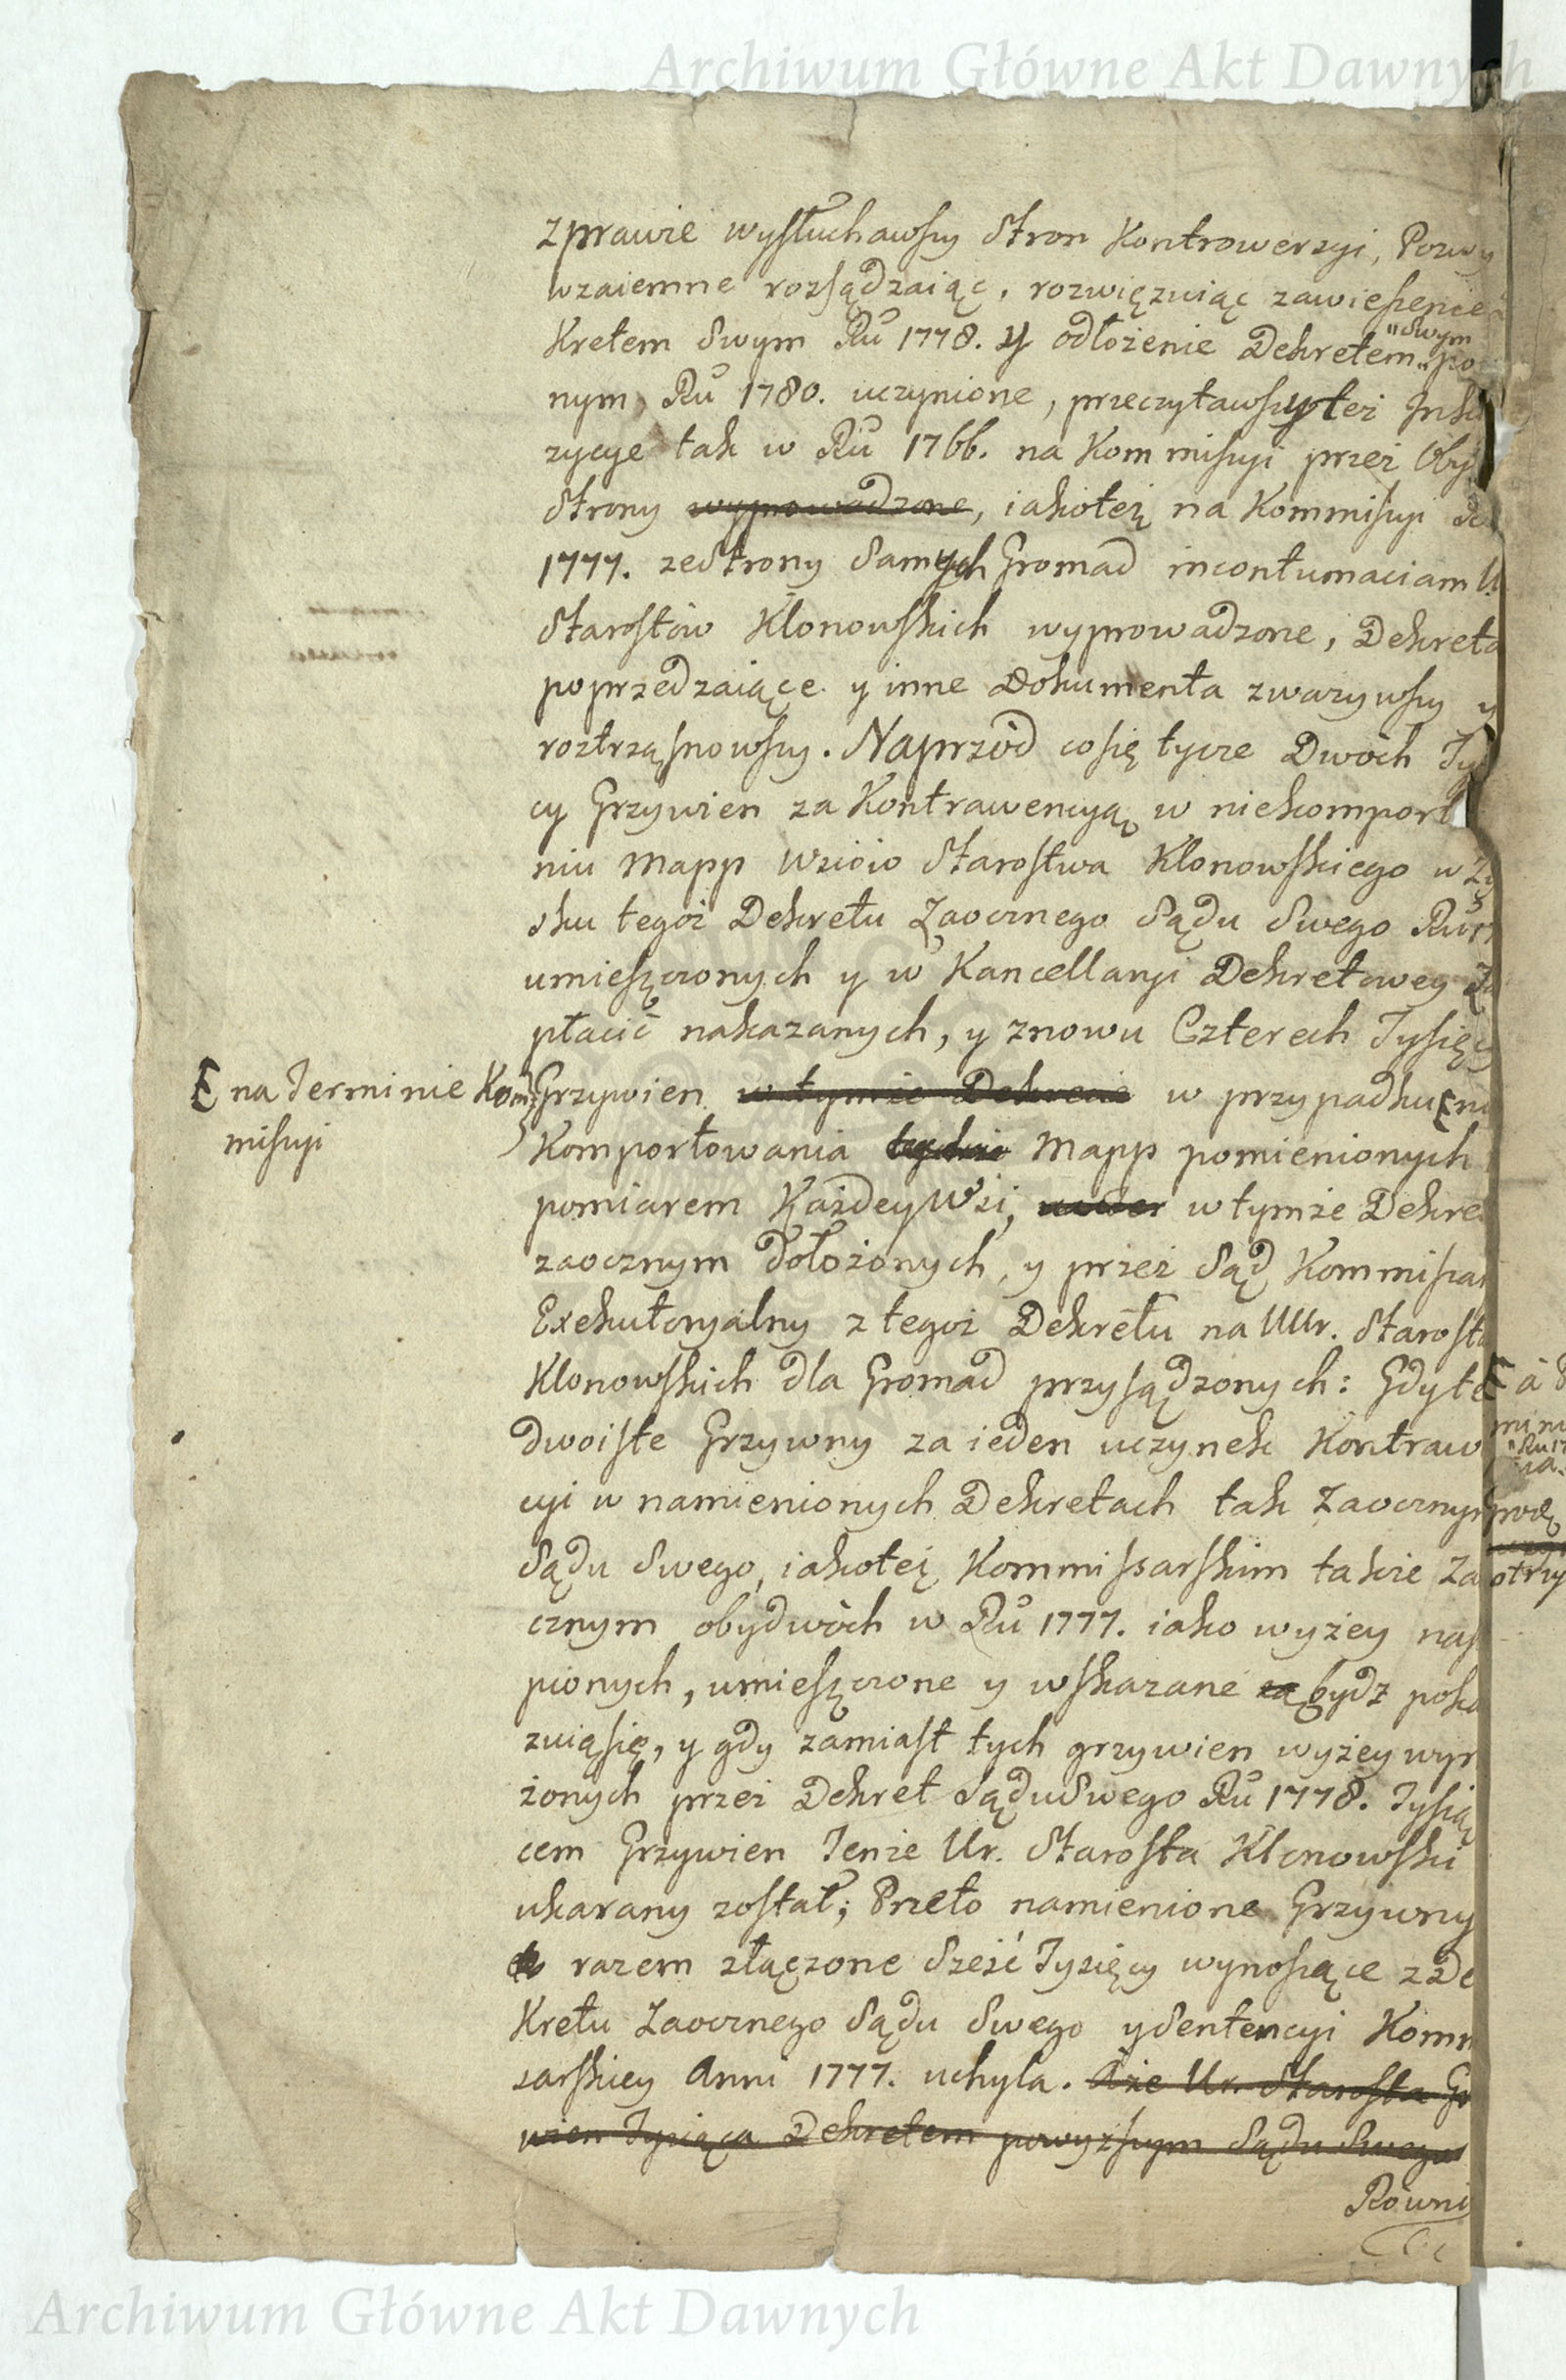 Archiwum Główne Akt Dawnych
zprawie wysłuchawszy Stron Kontrowersyi, Pozwy
wzaiemne rozsądzaiąc, rozwięzuiąc zawieszenie
Kretem Swym Ru 1778. y odłożenie Dekretem "Swym" po
nym Ru 1780. uczynione, przeczytawszy też Inkw
zycye tak w Ru 1766. na Kommissyi przez Oby
Strony wyprowadzone, iakoteż na Kommissyi Ru
1777. ze Strony Samych Gromad in contumaciam U.
Starostow Klonowskich wyprowadzone, Dekreta
poprzedzaiące y inne Dokumenta zwarzywszy y
roztrząsnowszy. Naprzód co się tycze Dwoch Ty
cy Grzywien za Kontrawencyą w niekomport
niu Mapp Wsiów Starostwa Klonowskiego w Zy
sku tegoż Dekretu Zaocznego Sądu Swego Ru 17
umieszczonych y w Kancellaryi Dekretowey Za
płacić nakazanych, y znowu Czterech Tysięcy
[ na Terminie Kom
missyi
Grzywien w tymże Dekrecie w przypadku [ nie
Komportowania tychże Mapp pomienionych
pomiarem Każdey Wsi, w tymże Dekre
zaocznym dołożonych, y przez Sąd Kommissar
Exekutoryalny z tegoż Dekretu na UUr. Starosta
Klonowskich dla Gromad przysądzonych: Gdy te
dwoiste Grzywny za ieden uczynek Kontraw
cyi w namienionych Dekretach tak Zaocznym
Sądu Swego, iakoteż Kommissarskim także Za
cznym obydwóch w Ru 1777. iako wyżey nas
pionych, umieszczone y wskazane są bydz poka
zuią się, y gdy zamiast tych grzywien wyżey wyr
żonych przez Dekret Sądu Swego Ru 1778. Tysią
cem Grzywien Tenże Ur. Starosta Klonowski
ukarany został; Przeto namienione Grzywny
razem złączone Sześć Tysięcy wynoszące z De
Kretu Zaocznego Sądu Swego y Sentencyi Komm
sarskiey Anni 1777. uchyla. A że Ur. Starosta Gr
wien Tysiąca Dekretem powyższym Sądu Swego
Równi
Archiwum Główne Akt Dawnych